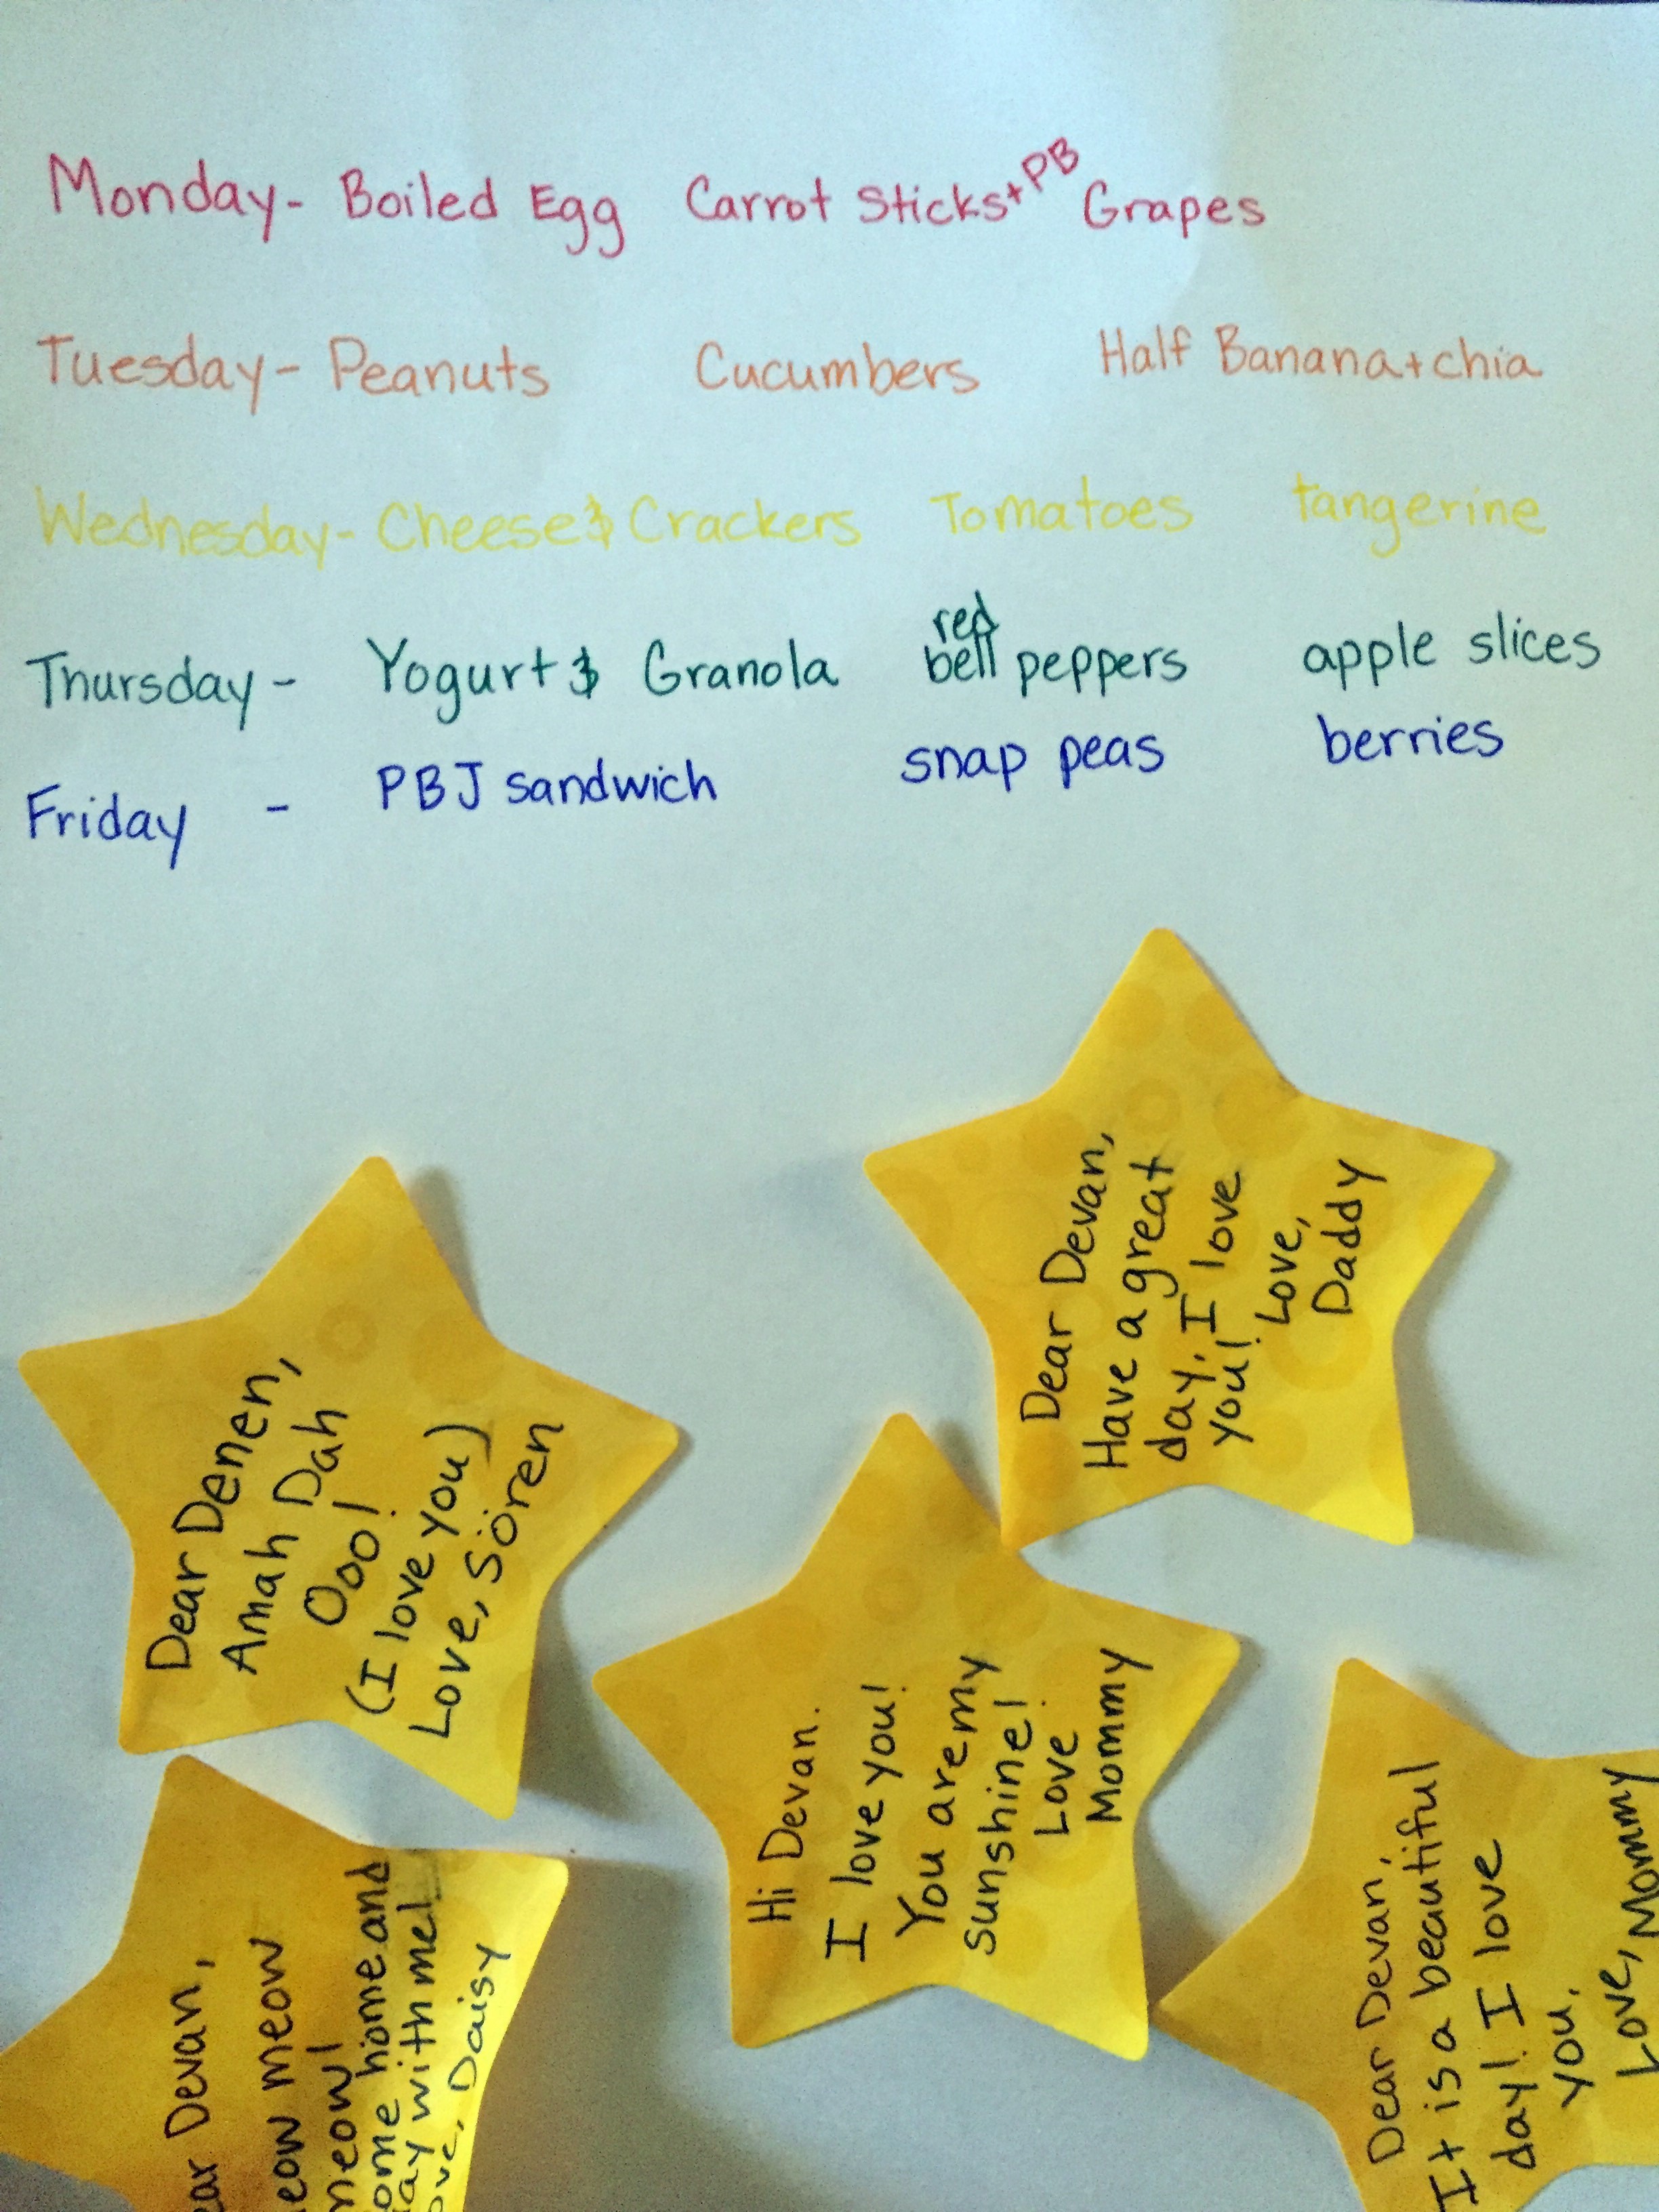 Monday - Boiled Egg Carrot Sticks + PB Grapes
Tuesday - Peanuts Cucumbers Half Banana + chia
Wednesday - Cheese & Crackers Tomatoes tangerine
Thursday - Yogurt & Granola red bell peppers apple slices
Friday - PBJ sandwich snap peas berries
Dear Devan,
Have a great
day, I love
you!
Love,
Daddy
Dear Denen,
Amah Dah
Ooo!
(I love you)
Love, Sören
Hi Devan.
I love you!
You are my
sunshine!
Love
Mommy
Dear Devan,
It is a beautiful
day! I love
you.
Love, Mommy
ear Devan,
eow meow
meow!
ome home and
ay with me!
ove, Daisy